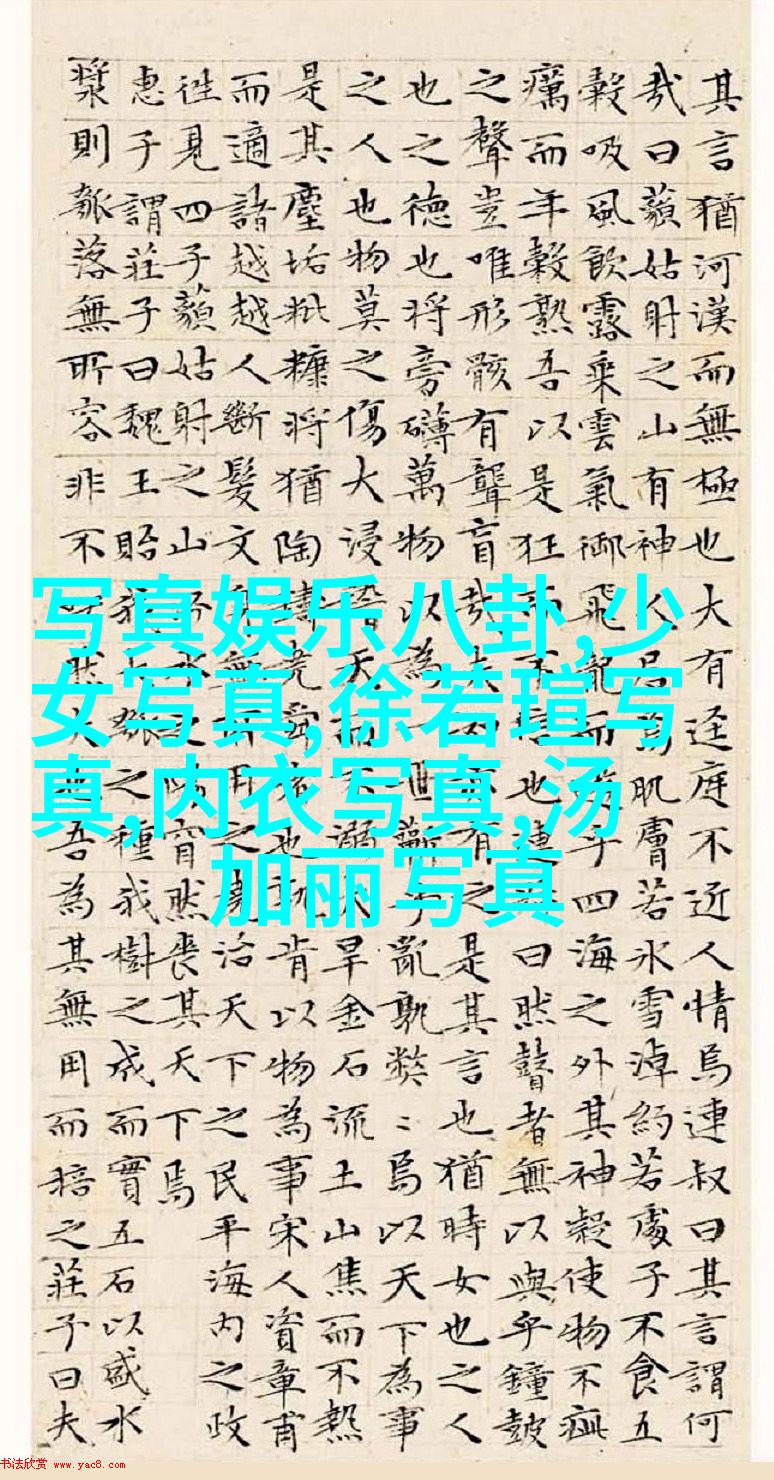 其言猶河漢而無極也大有迳庭不近人情焉連叔曰其言謂何
哉曰藐姑射之山有神人居焉肌膚若氷雪淖約若處子不食五
穀吸風飲露乘雲氣御飛龍而乎四海之外其神凝使物不疵
癘而年穀熟吾以是狂而不信也連叔曰然瞽者無以與乎鐘鼓
之聲豈唯形骸有聾盲哉夫亦有之是其言也猶時女也之人
也之德也将旁礴萬物以為一世蘄乎亂孰弊〻焉以天下為事
之人也物莫之傷大浸稽天而不溺大旱金石流土山焦而不熱
是其塵垢粃糠將猶陶鑄堯舜者也孰肯以物為事宋人資章甫
而適諸越越人斷髮文身無所用之堯治天下之民平海内之政
往見四子藐姑射之山汾水之陽窅然喪其天下焉
惠子謂莊子曰魏王貽我大瓠之種我樹之成而實五石以盛水
漿則瓠落無所容非不然大也吾為其無用而掊之莊子曰夫
写真娱乐八卦,少
女写真,徐若瑄写
真,内衣写真,汤
加丽写真
书法欣赏 www.yac8.com